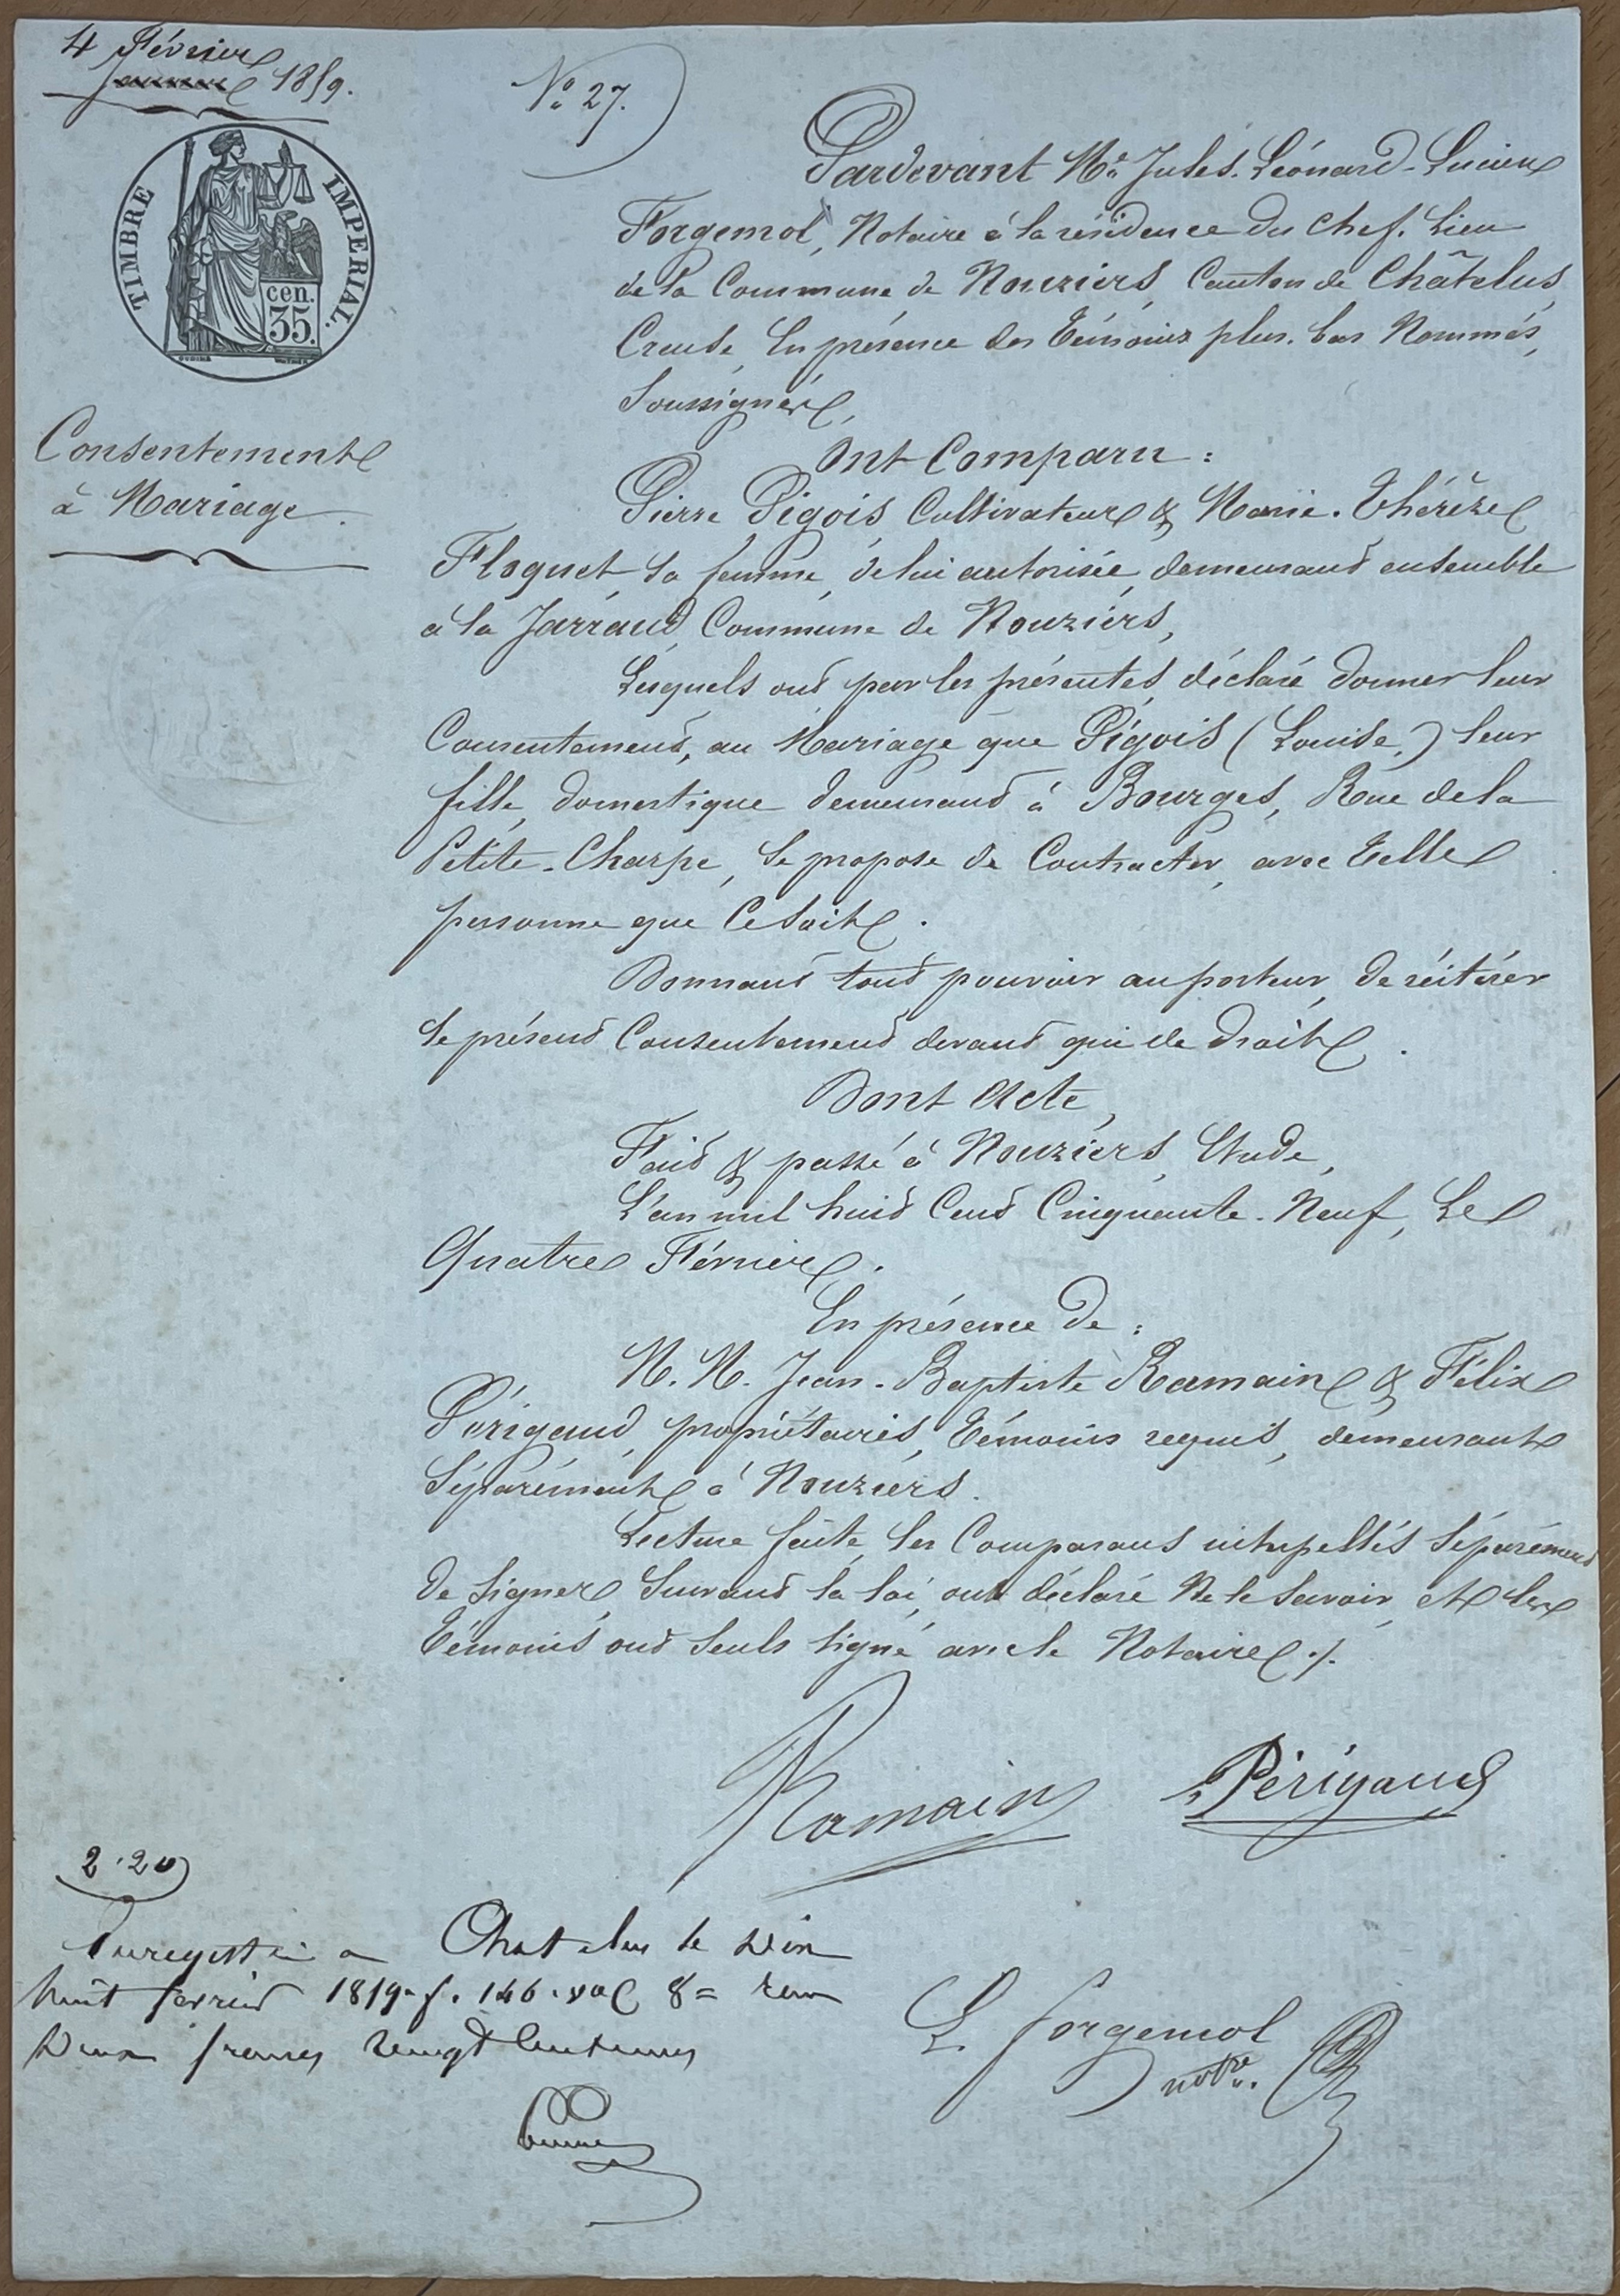 4 Février
janvier 1859.
N° 27.
TIMBRE IMPERIAL.
cen.
35.
Consentement
à Mariage.
Pardevant Me Jules-Léonard-Lucien
Forgemol, Notaire à la résidence du Chef-Lieu
de la Commune de Nouziers, Canton de Châtelus,
Creuse, En présence des Témoins plus-bas Nommés,
Soussignés,
Ont Comparu :
Pierre Pigois Cultivateur & Marie-Thérèze
Floquet sa femme, de lui autorisée, demeurant ensemble
à la Jarraud, Commune de Nouziers,
Lesquels ont par les présentes, déclaré donner leur
Consentement, au Mariage que Pigois (Louise,) leur
fille, domestique demeurant à Bourges, Rue de la
Petite-Charpe, Se propose de Contracter, avec Telle
personne que Ce soit.
Donnant tout pouvoir au porteur, de réitérer
le présent Consentement devant qui de droit.
Dont Acte,
Fait & passé à Nouziers, Etude,
L'an mil huit Cent Cinquante-Neuf, Le
Quatre Février.
En présence de :
M.M. Jean-Baptiste Ramain & Félix
Périgaud, propriétaires, Témoins requis, demeurant
Séparément à Nouziers.
Lecture faite, les Comparans interpellés Séparément
de Signer, Suivant la loi, ont déclaré Ne le Savoir, et les
Témoins ont Seuls signé avec le Notaire ./.
Ramain
Périgaud
2.20
Enregistré à Chatelus le Dix
huit fevrier 1859. f. 146. vo C 8 = reçu
Deux francs vingt Centimes
L. Forgemol
notre.